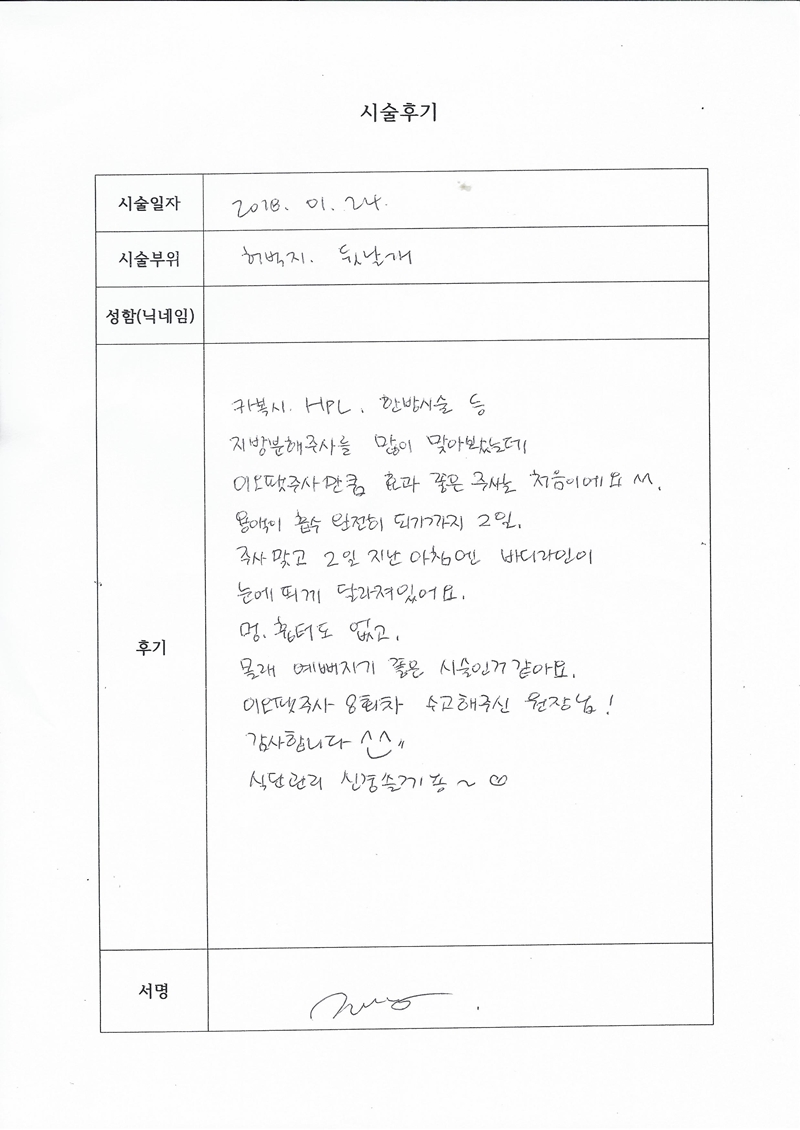 시술후기
시술일자 2018. 01. 24.
시술부위 허벅지. 뒷날개
성함(닉네임)
후기
카복시. HPL. 한방시술 등
지방분해주사를 많이 맞아봤는데
이오땟주사만큼 효과 좋은 주사는 처음이에요 ^^.
용액이 흡수 완전히 되기까지 2일.
주사 맞고 2일 지난 아침엔 바디라인이
눈에 띄게 달라져있어요.
멍. 흉터도 없고.
몰래 예뻐지기 좋은 시술인거 같아요.
이오땟주사 8회차 수고해주신 원장님!
감사합니다 ^^"
식단관리 신경쓸게용~♡
서명